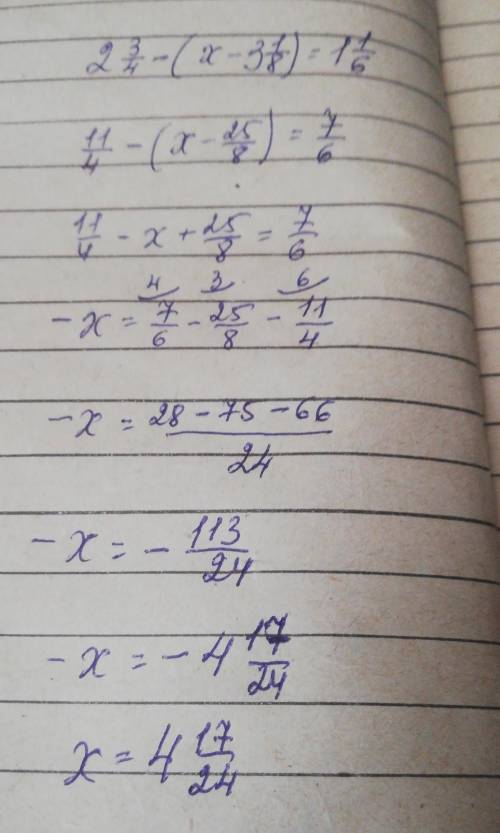 2 3/4 - (x - 3 1/8) = 1 1/6
11/4 - (x - 25/8) = 7/6
11/4 - x + 25/8 = 7/6
4 3 6
-x = 7/6 - 25/8 - 11/4
-x = (28 - 75 - 66)/24
-x = - 113/24
-x = - 4 17/24
x = 4 17/24